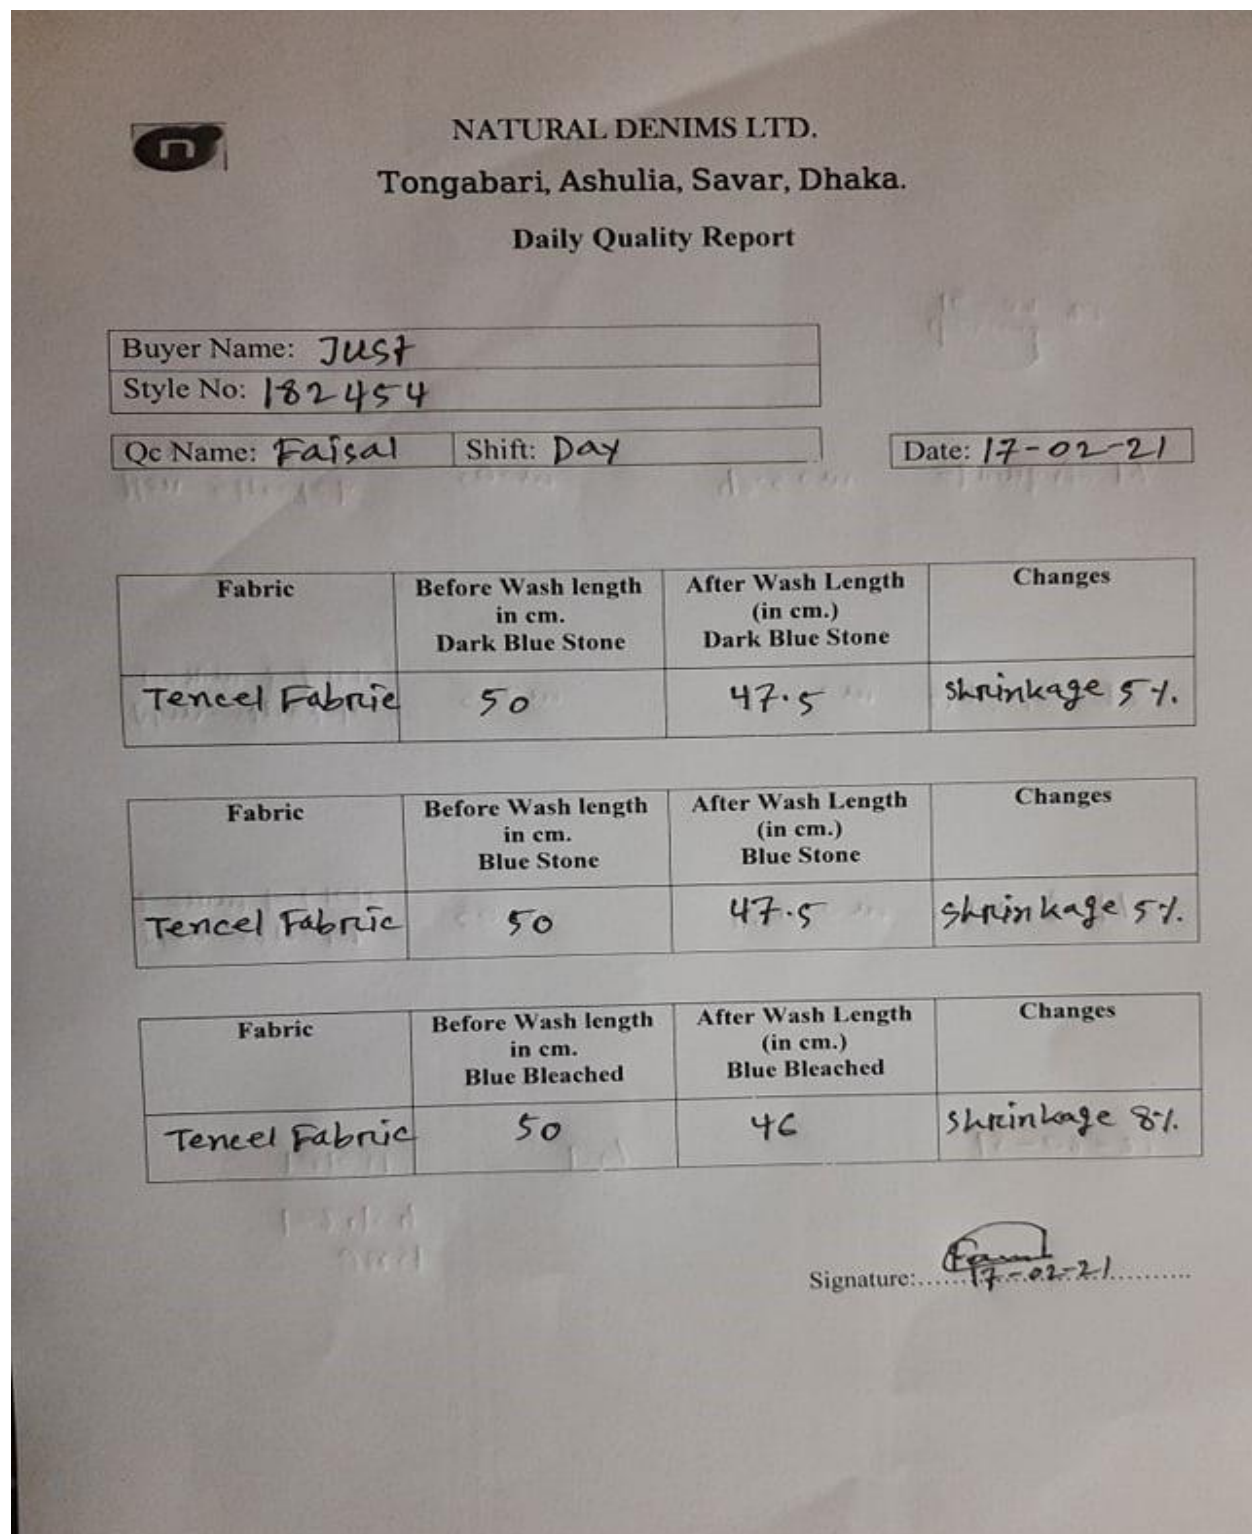 n
NATURAL DENIMS LTD.
Tongabari, Ashulia, Savar, Dhaka.
Daily Quality Report
Buyer Name: Just
Style No: 182454
Qc Name: Faisal Shift: Day Date: 17-02-21
Fabric Before Wash length in cm. Dark Blue Stone After Wash Length (in cm.) Dark Blue Stone Changes
Tencel Fabric 50 47.5 Shrinkage 5%.
Fabric Before Wash length in cm. Blue Stone After Wash Length (in cm.) Blue Stone Changes
Tencel Fabric 50 47.5 Shrinkage 5%.
Fabric Before Wash length in cm. Blue Bleached After Wash Length (in cm.) Blue Bleached Changes
Tencel Fabric 50 46 Shrinkage 8%.
Signature:
17-02-21